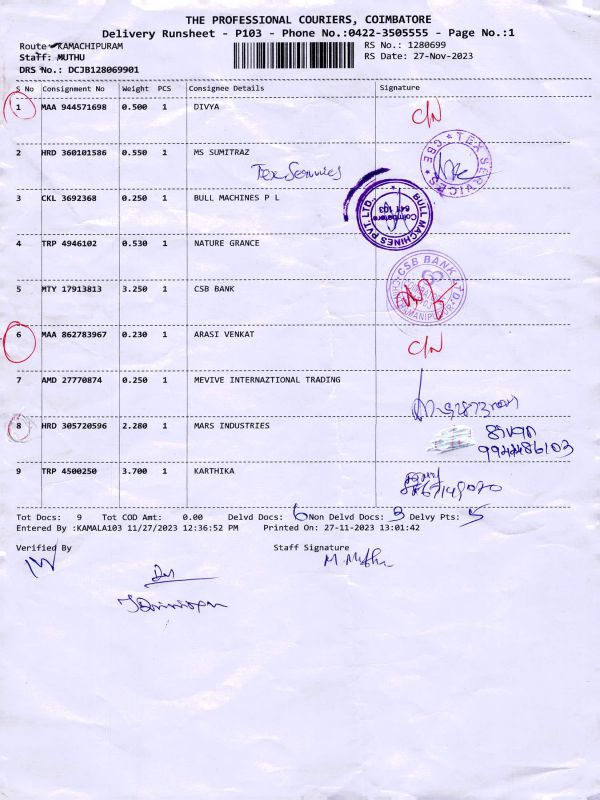 THE PROFESSIONAL COURIERS, COIMBATORE
Delivery Runsheet - P103 - Phone No.:0422-3505555 - Page No.:1
Route KAMACHIPURAM RS No.: 1280699
Staff: MUTHU RS Date: 27-Nov-2023
DRS No.: DCJB128069901
S No Consignment No Weight PCS Consignee Details Signature
1 MAA 944571698 0.500 1 DIVYA C/N
2 HRD 360101586 0.550 1 MS SUMITRAZ TEX SERVICES * CBE *
Tex Services
3 CKL 3692368 0.250 1 BULL MACHINES P L BULL MACHINES PVT LTD. Coimbatore 641 103
4 TRP 4946102 0.530 1 NATURE GRANCE
5 MTY 17913813 3.250 1 CSB BANK CSB BANK LTD.
6 MAA 862783967 0.230 1 ARASI VENKAT C/N
7 AMD 27770874 0.250 1 MEVIVE INTERNAZTIONAL TRADING
8 HRD 305720596 2.280 1 MARS INDUSTRIES
9 TRP 4500250 3.700 1 KARTHIKA
Tot Docs: 9 Tot COD Amt: 0.00 Delvd Docs: 6 Non Delvd Docs: 3 Delvy Pts: 5
Entered By :KAMALA103 11/27/2023 12:36:52 PM Printed On: 27-11-2023 13:01:42
Verified By Staff Signature
M. Muthu